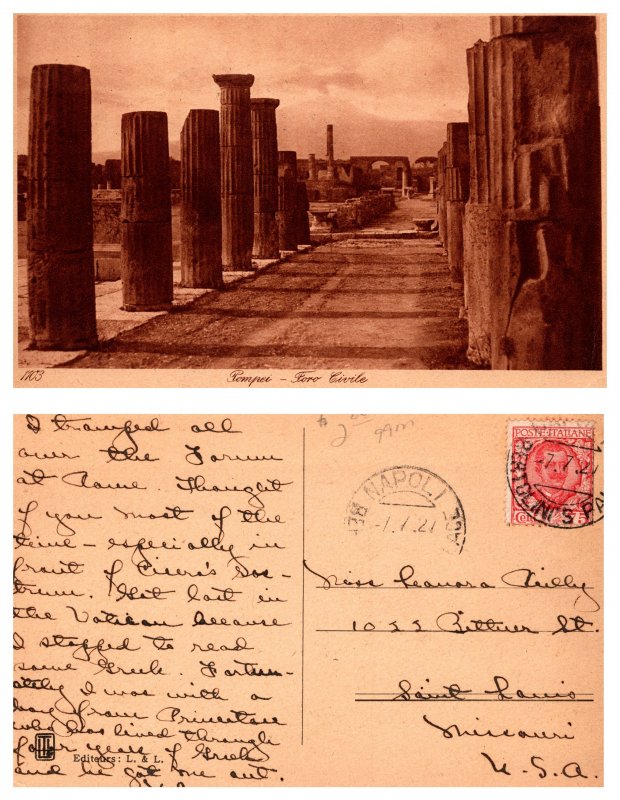 1103 Pompei - Foro Civile
I tramped all
over the Forum
at Rome. Thought
of you most of the
time - especially in
front of Cicero's Ros-
trum. Got lost in
the Vatican because
I stopped to read
some Greek. Fortun-
ately I was with a
boy from Princeton
who has lived through
four years of Greek
and he got me out.
Editeurs: L. & L.
NAPOLI
-7.7.27
POSTE ITALIANE
-7.7.27
Miss Leonora Reilly
1055 Bittner St.
Saint Louis
Missouri
U.S.A.